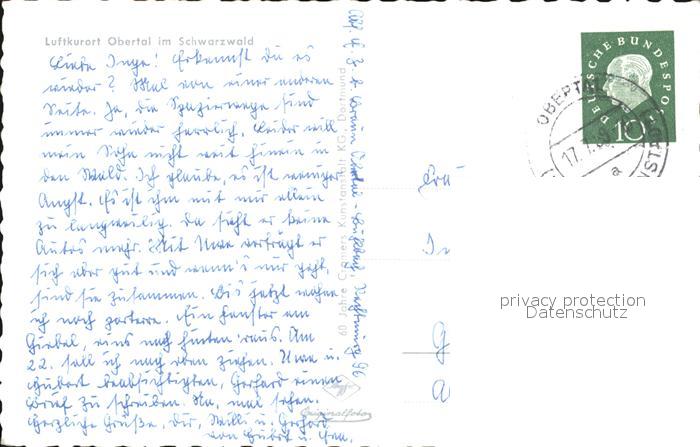 Luftkurort Obertal im Schwarzwald
Liebe Inge! Erkennst du es
wieder? Mal von einer anderen
Seite. Ja, die Spazierwege sind
immer wieder herrlich, leider will
mein Sohn nicht weit hinein in
den Wald. Ich glaube, es ist weniger
Angst. Es ist ihm mit mir allein
zu langweilig. Da sieht er keine
Autos mehr. Mit Uwe verträgt er
sich aber gut und wenn's nur geht,
sind sie zusammen. Bis jetzt wohne
ich noch parterre. Ein Fenster am
Giebel, eins nach hinten raus. Am
22. soll ich nach oben ziehen. Uwe u.
Hubert beabsichtigten, Gerhard einen
Brief zu schreiben. Na, mal sehen.
Herzliche Grüße, Dir, Willi u. Gerhard
von Hubert u.
60 Jahre Cramers Kunstanstalt KG., Dortmund
Originalfoto
DEUTSCHE BUNDESPOST
10
OBERTAL
17.
a
privacy protection
Datenschutz